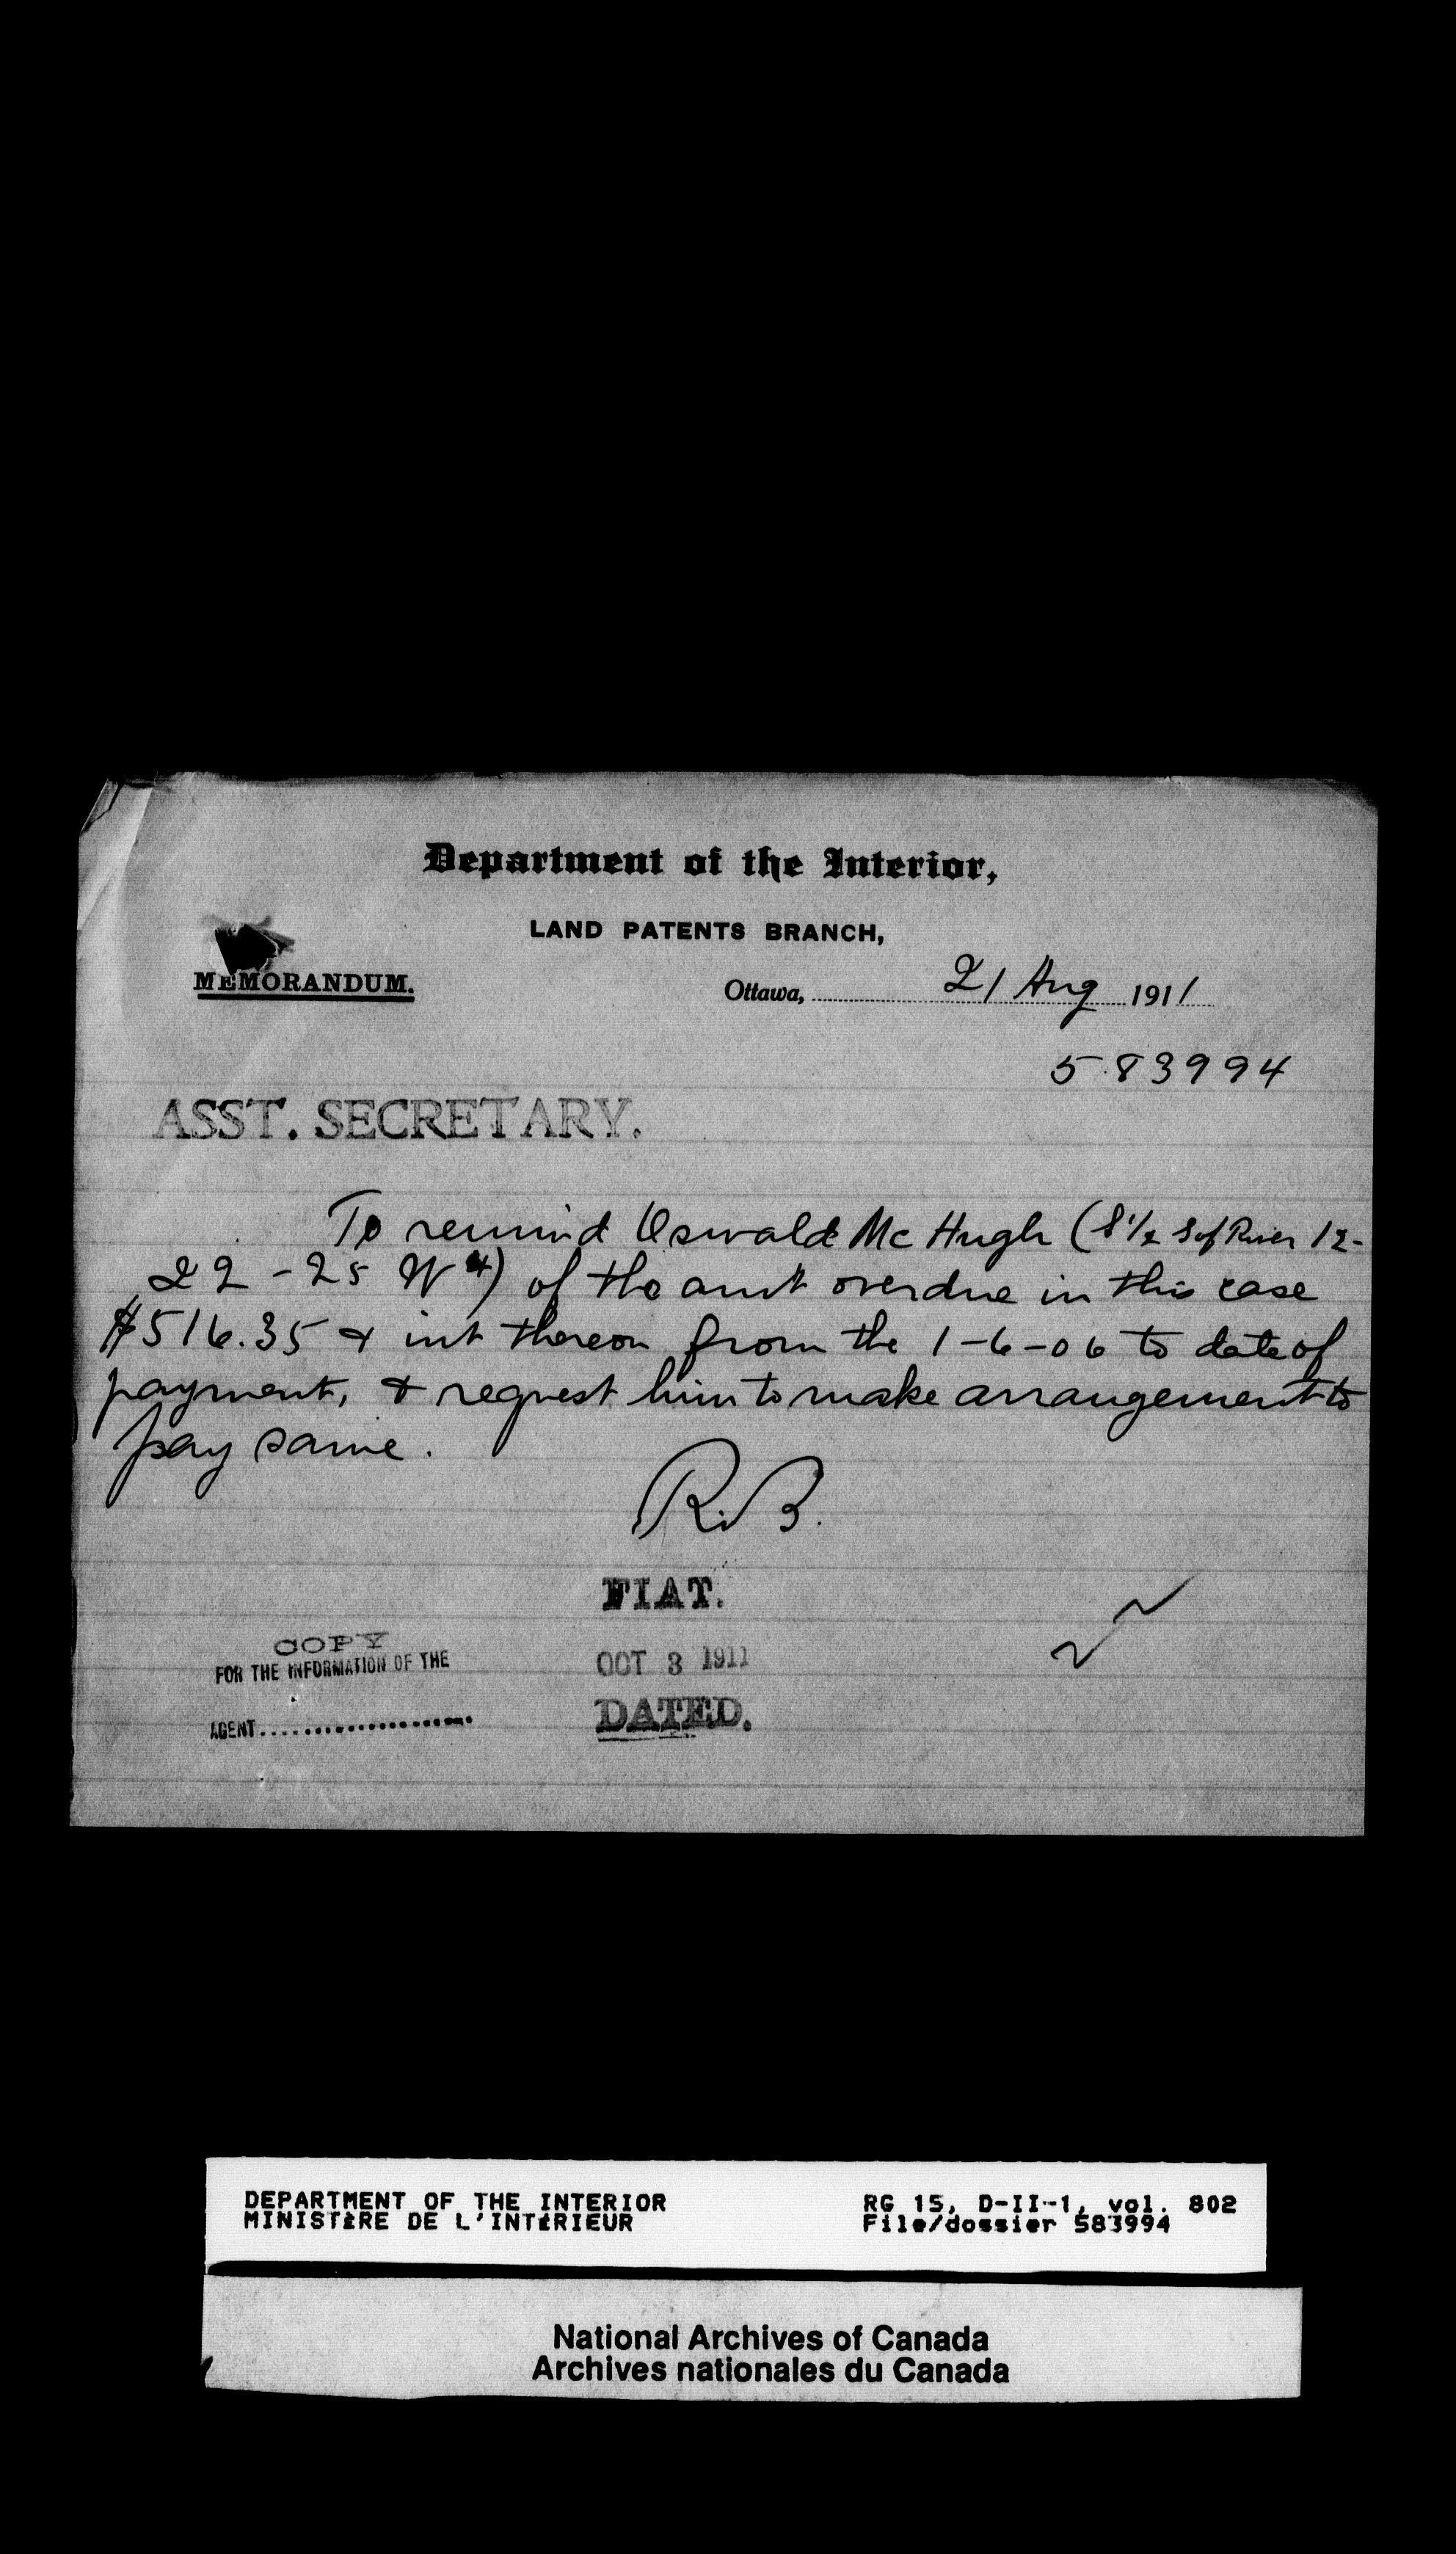 Department of the Interior,
LAND PATENTS BRANCH,
MEMORANDUM.
Ottawa, 21 Aug 1911
583994
ASST. SECRETARY.
To remind Oswald McHugh (S 1/2 S of River 12-
22-25 W4) of the amt overdue in this case
$516.35 & int thereon from the 1-6-06 to date of
payment, & request him to make arrangement to
pay same.
R.B.
FIAT.
COPY
FOR THE INFORMATION OF THE
AGENT....................
OCT 3 1911
DATED.
DEPARTMENT OF THE INTERIOR
MINISTÈRE DE L'INTÉRIEUR
RG 15, D-II-1, vol. 802
File/dossier 583994
National Archives of Canada
Archives nationales du Canada